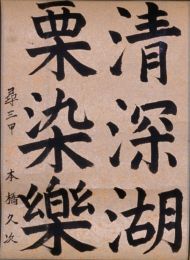 清深湖
栗染樂
尋三甲 本橋久次